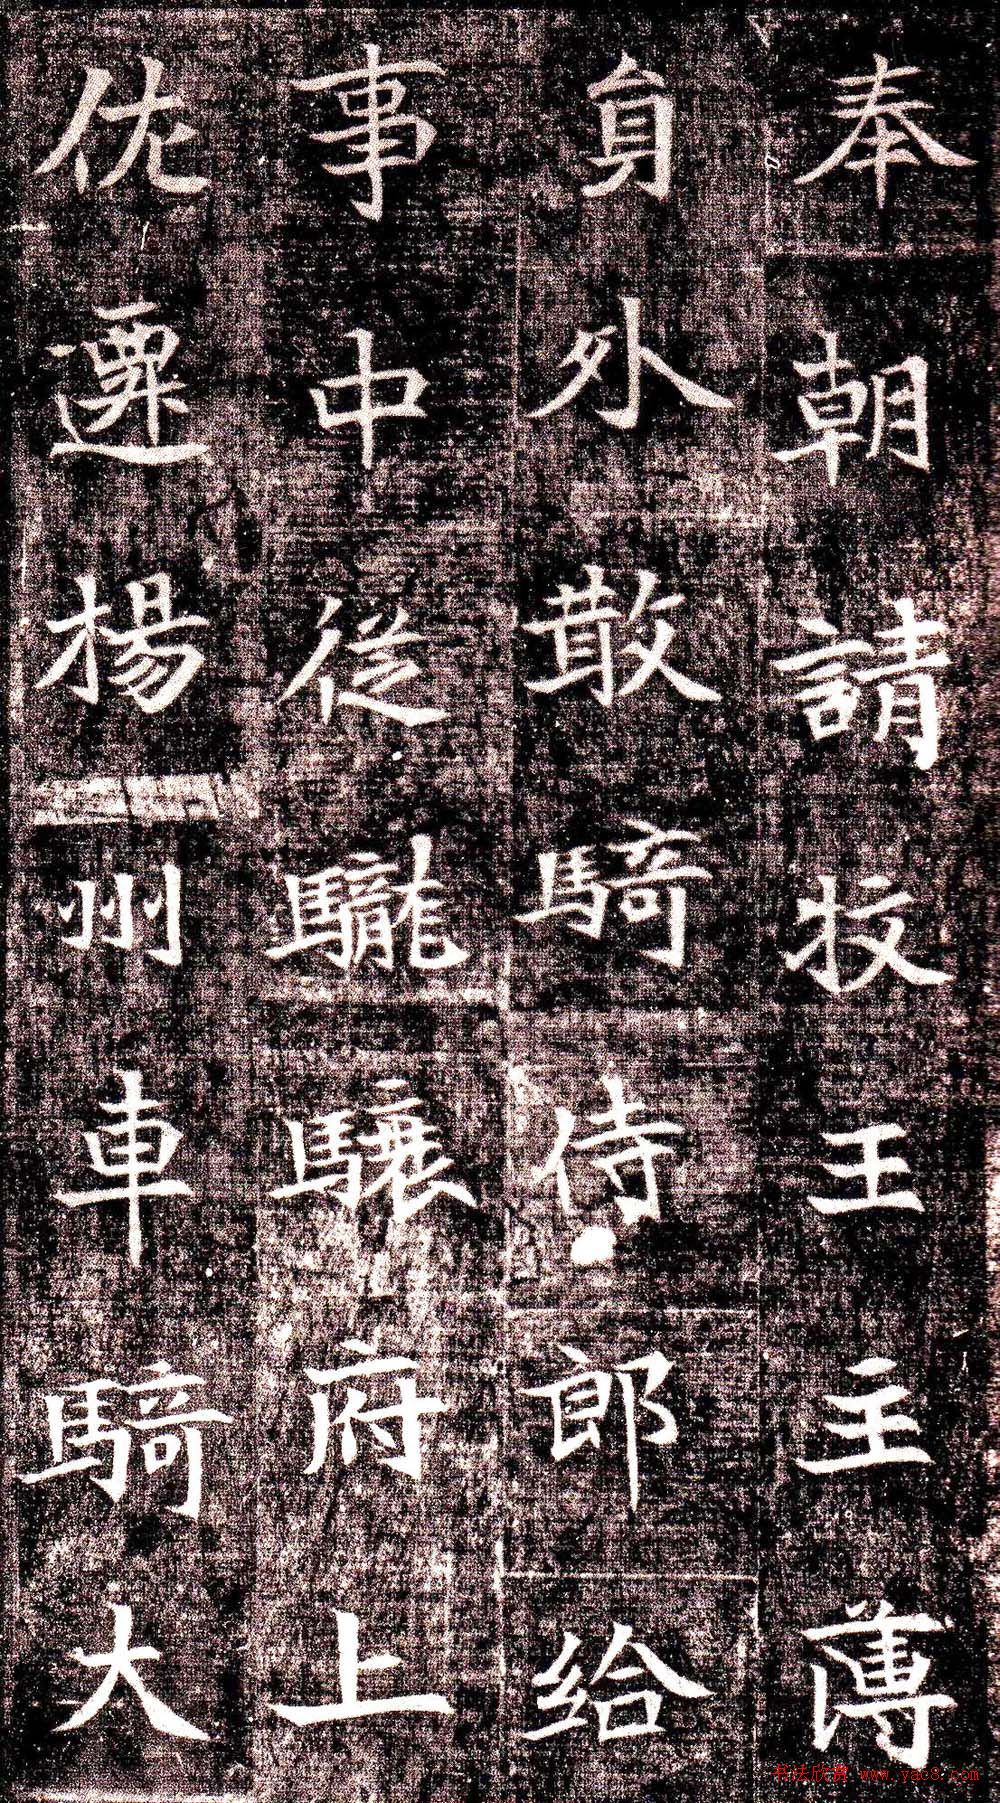 奉朝請牧王主薄
貟外散騎侍郎給
事中從驡驤府上
佐遷楊州車騎大
书法欣赏 www.yac8.com